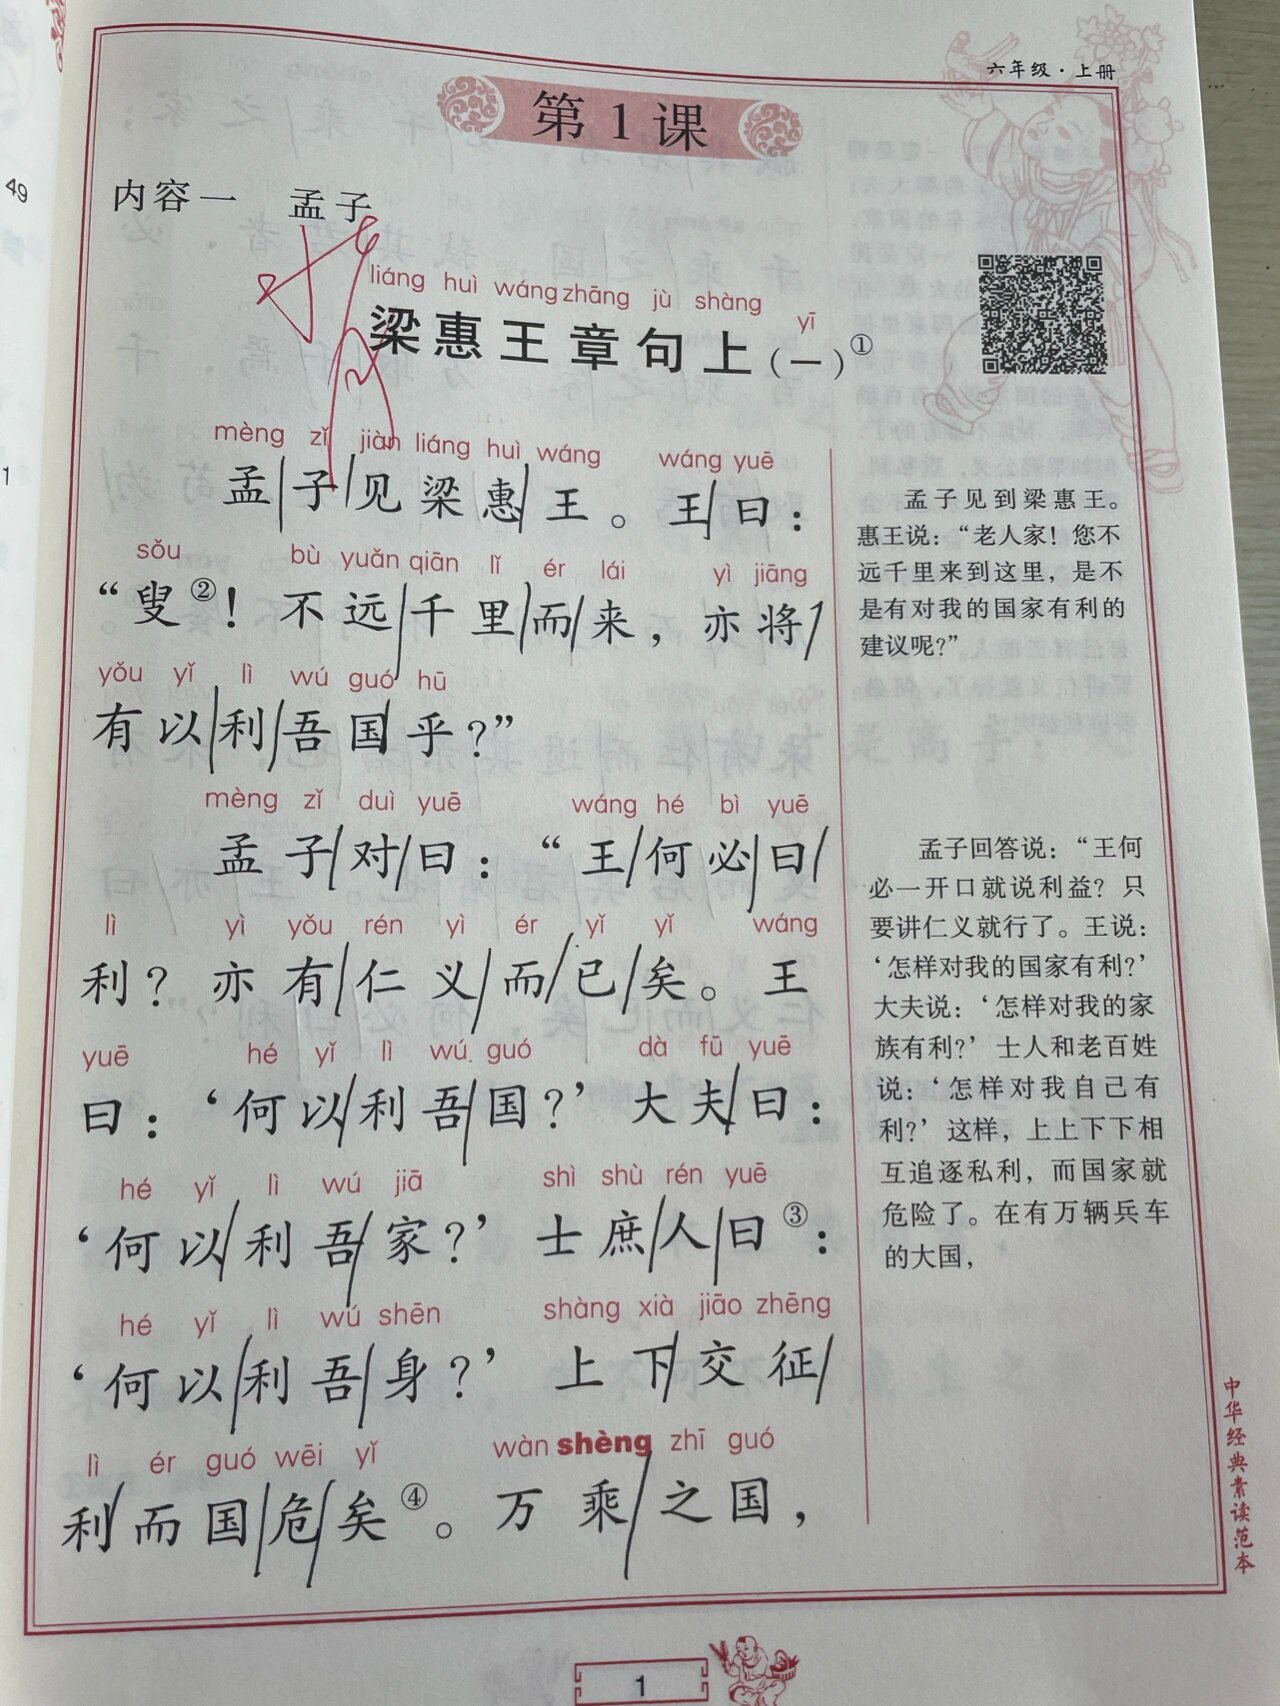 49
1
六年级·上册
第1课
内容一 孟子
liáng huì wáng zhāng jù shàng yī
梁惠王章句上(一)①
mèng zǐ jiàn liáng huì wáng wáng yuē
孟子见梁惠王。王曰：
sǒu bù yuǎn qiān lǐ ér lái yì jiāng
“叟②！不远千里而来，亦将
yǒu yǐ lì wú guó hū
有以利吾国乎？”
mèng zǐ duì yuē wáng hé bì yuē
孟子对曰：“王何必曰
lì yì yǒu rén yì ér yǐ yǐ wáng
利？亦有仁义而已矣。王
yuē hé yǐ lì wú guó dà fū yuē
曰：‘何以利吾国？’大夫曰：
hé yǐ lì wú jiā shì shù rén yuē
‘何以利吾家？’士庶人曰③：
hé yǐ lì wú shēn shàng xià jiāo zhēng
‘何以利吾身？’上下交征
lì ér guó wēi yǐ wàn shèng zhī guó
利而国危矣④。万乘之国，
孟子见到梁惠王。
惠王说：“老人家！您不
远千里来到这里，是不
是有对我的国家有利的
建议呢？”
孟子回答说：“王何
必一开口就说利益？只
要讲仁义就行了。王说：
‘怎样对我的国家有利？’
大夫说：‘怎样对我的家
族有利？’士人和老百姓
说：‘怎样对我自己有
利？’这样，上上下下相
互追逐私利，而国家就
危险了。在有万辆兵车
的大国，
中华经典素读范本
1